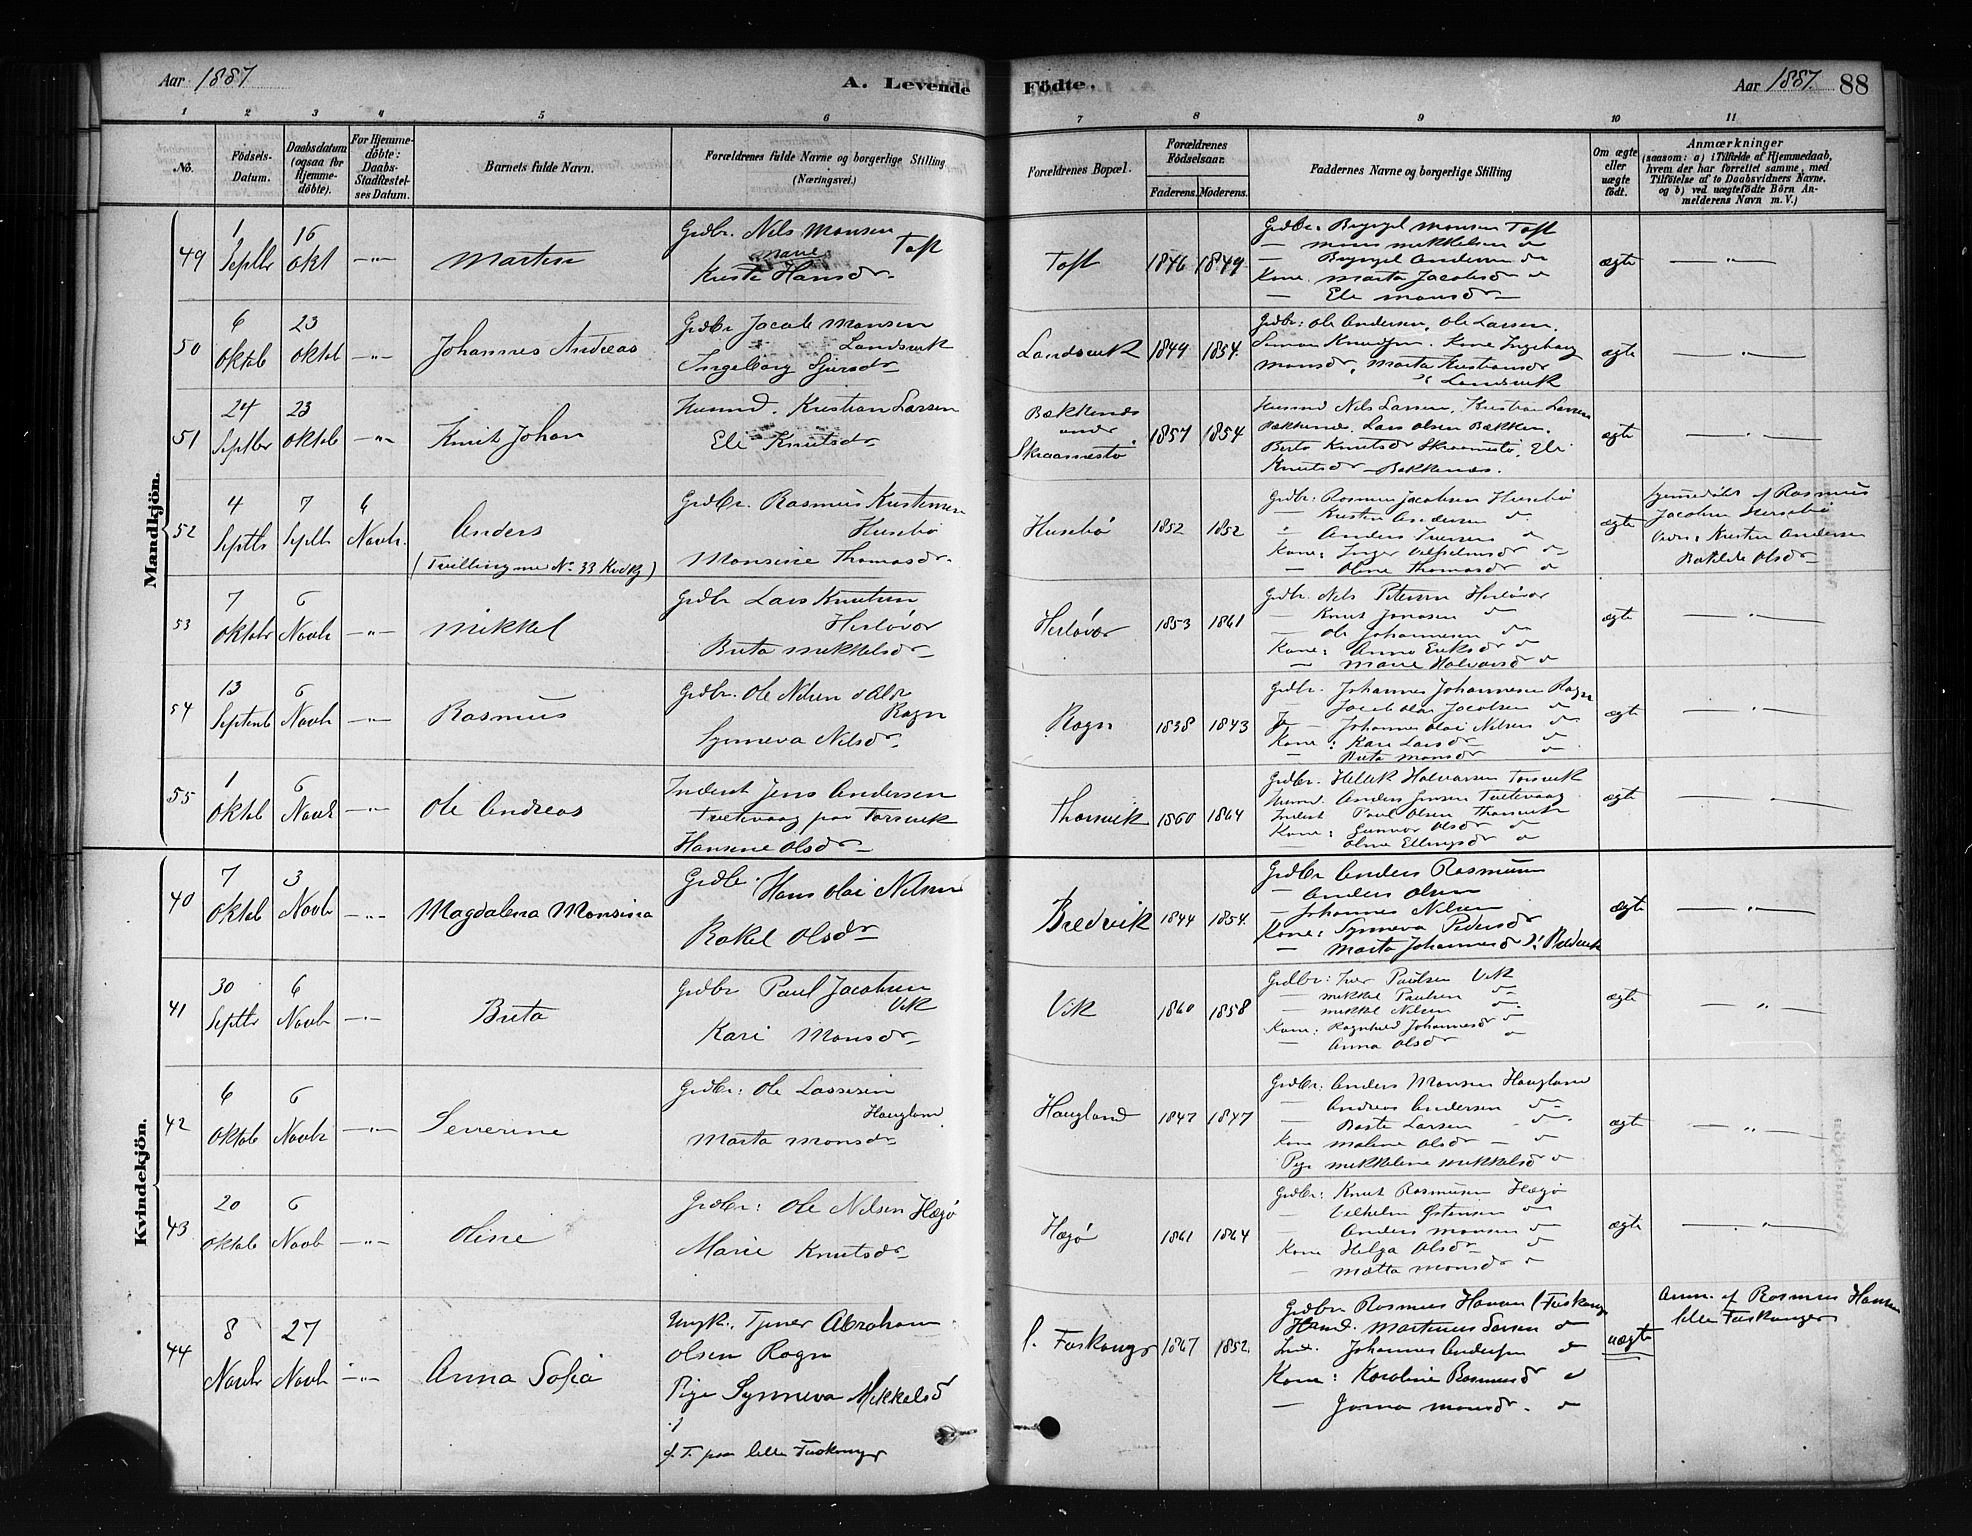 Aar 1887.
A. Levende
Födte.
Aar 1887. 88
1 2 3 4 5 6 7 8 9 10 11
No.
Födsels-Datum.
Daabsdatum (ogsaa for Hjemme-döbte).
For Hjemme-döbte: Daabs-Stadfæstel-ses Datum.
Barnets fulde Navn.
Forældrenes fulde Navne og borgerlige Stilling (Næringsvei.)
Forældrenes Bopæl.
Forældrenes Födselsaar.
Faderens. Moderens.
Faddernes Navne og borgerlige Stilling
Om ægte eller uægte födt.
Anmærkninger
(saasom: a) i Tilfælde af Hjemmedaab, hvem der har forrettet samme, med Tilföielse af to Daabsvidners Navne, og b) ved uægtefödte Börn An-melderens Navn m. V.)
Mandkjön.
49 1 Septbr 16 Okt —"— Martin
Grdbr. Nils Monsen
Toft
Hansdr.
Toft 1846 1849.
Monsen Toft
Mons Mikkelsen do
Andersen do
Kone. Marta Jacobsdr do
— Eli Monsdr —
ægte —"—
50 6 Oktob 23 Oktob —"— Johannes Andreas
Grdbr Jacob Monsen
Landsvik
Ingeborg Sjursdr
Landsvik 1849 1854.
Grdbr: Ole Andersen, Ole Larsen,
Simon Knudsen. Kone Ingeborg
Monsdr, Marta Kristiansdr
Landsvik
ægte —"—
51 24 Septbr 23 Oktob —"— Knut Johan
Husmd. Kristian Larsen
Eli Knutsdr
Bækkenes under Skraamestø 1857 1854
Husmd Nils Larsen, Kristian Larsen
Bækkenes, Lars Olsen Bækken.
Berta Knutsdr Skraamestø, Eli
Knutsdr — Bækkenes.
ægte —"—
52 4 Septbr 7 Septb 6 Novbr.
Anders
(Tvilling med No 33 Kvdkj)
Grdbr. Rasmus Kristensen
Husebø
Monsine Thomasdr.
Husebø 1852 1852
Grdbr: Rasmus Jacobsen Husebø
— Kristen Andersen do
Anders Iversen do
Kone: Inger Vilhelmsdr do
— Oline Thomasdr do
ægte
Hjemmedøbt af Rasmus
Jacobsen Husebø
Vidn: Kristen Andersen
Batilde Olsdr —
53 7 Oktobr 6 Novbr —"— Mikkel
Grdbr Lars Knutsen
Herløvær
Brita Mikkelsdr
Herløvær 1853 1861
Grdbr. Nils Petersen Herløvær
— Knut Jonasen do
— Ole Johannesen do
Kone: Anna Eriksdr do
— Marie Halvorsdr do
ægte —"—
54 13 Septemb 6 Novbr —"— Rasmus
Grdbr. Ole Nilsen
Rogn
Synneva Nilsdr.
Rogn 1838 1843
Grdbr. Johannes Johannesen Rogn
— Jacob Olai Jacobsen do
— Johannes Olai Nilsen do
Kone: Kari Larsdr do
Brita Monsdr do
ægte —"—
55 1 Oktob 6 Novbr —"— Ole Andreas
Inderst Jens Andersen
Tveitevaag paa Torsvik
Hansine Olsdr —
Thorsvik 1860 1864
Grdbr. Helvik Halvarsen Torsvik
Husmd. Anders Jensen Tveitevaag
Inderst Paul Olsen Thorsvik
Kone: Gunvor Olsdr do
— Oline Ellingsdr do
ægte —"—
Kvindekjön.
40 7 Oktob 3 Novb —"— Magdalena Monsina
Grdbr. Hans Olai Nilsen
Rakel Olsdr
Bredvik 1844 1854.
Grdbr Anders Rasmusen
— Anders Olsen
— Johannes Nilsen
Kone: Synneva Pedersdr
— Marta Johannesdr Bredvik
ægte —"—
41 30 Septbr 6 Novb —"— Brita
Grdbr Paul Jacobsen
Vik
Kari Monsdr
Vik 1860 1858
Grdbr: Iver Paulsen Vik
— Mikkel Paulsen do
— Mikkel Nilsen do
Kone: Ragnhild Johannesdr do
— Anna Olsdr do
ægte —"—
42 6 Oktob 6 Novbr —"— Severine
Grdbr: Ole Lassesen
Haugland
Marta Monsdr
Haugland 1847 1847
Grdbr: Anders Monsen Haugland
— Andreas Andersen do
— Larsen do
Kone Malene Olsdr — do
Pige Mikkeline Mikkelsdr do
ægte —"—
43 20 Oktob 6 Novb —"— Oline
Grdbr: Ole Nilsen Hægø
Marie Knutsdr
Hægø 1861 1864
Grdbr: Knut Rasmusen Hægø
— Vilhelm Østensen do
— Anders Monsen do
Kone Helga Olsdr do
— Mætta Monsdr do
ægte —"—
44 8 Novbr 27 Novb —"— Anna Sofia
Ungk., Tjener Abraham
Olsen Rogn
Pige Synneva Mikkelsd
f. T. paa lille Fuskanger
l. Foskanger 1867 1852.
Grdbr Rasmus Hansen l Fuskanger
Husmd. Martinus Larsen do
Ind. Johannes Andersen do
Kone: Karoline Rasmusd do
— Monsdr. do
uægte
Anm. af Rasmus Hansen
lille Fuskanger